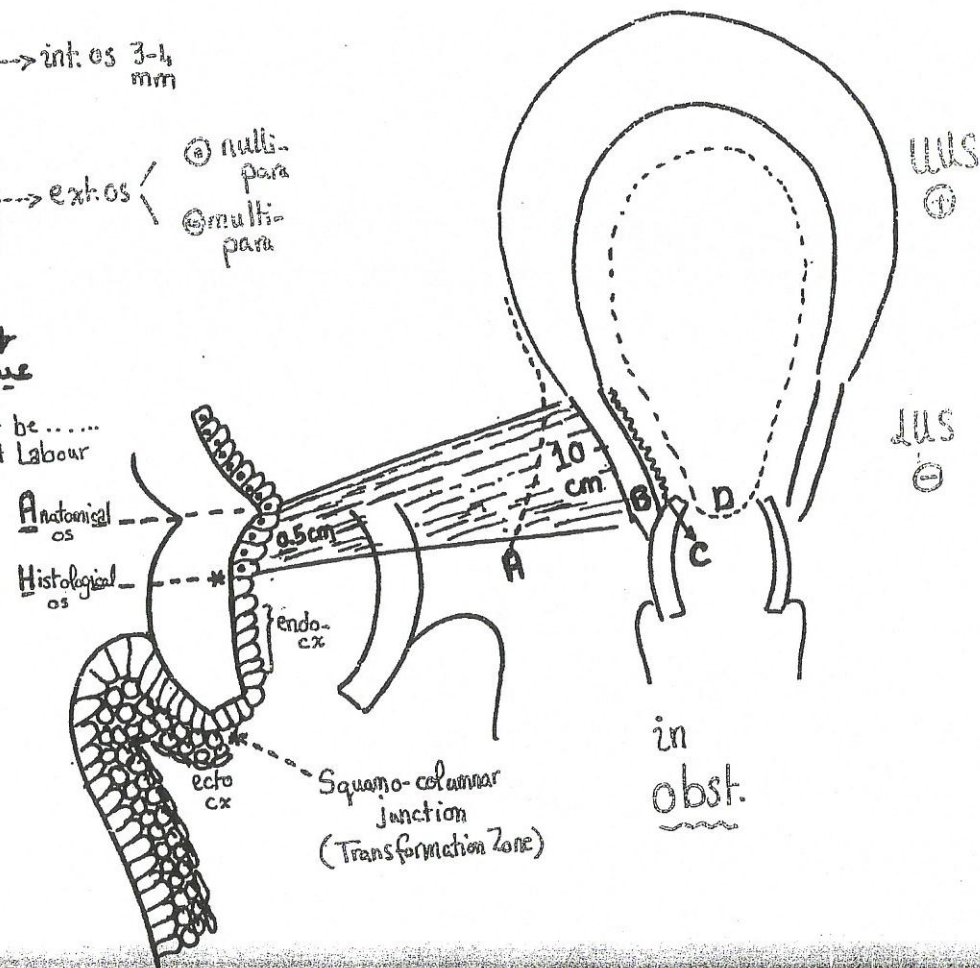 --> int. os 3-4
mm
--> ext. os
nulli-
para
multi-
para
be ......
Labour
Anatomical
os
Histological
os
0.5cm
endo-
cx
ecto
cx
Squamo-columnar
junction
(Transformation Zone)
10
cm
A
B
C
D
UUS
+
LUS
-
in
obst.